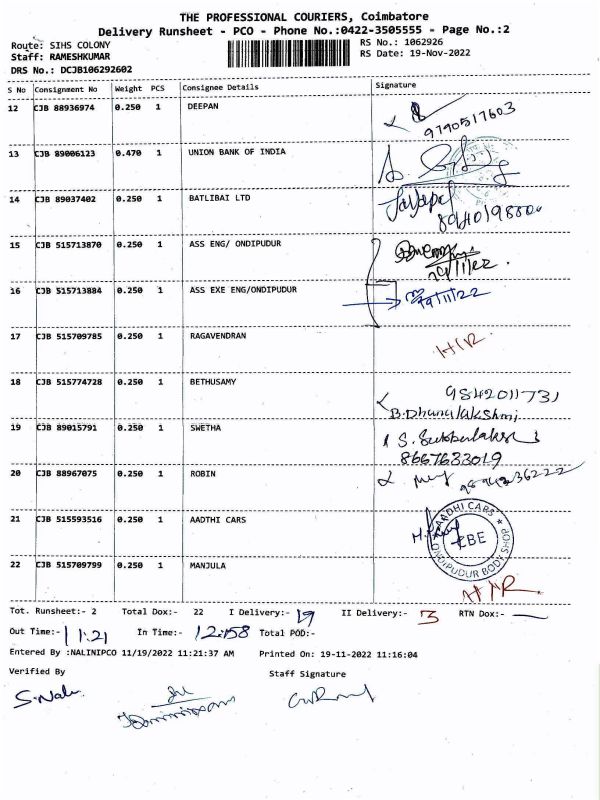 THE PROFESSIONAL COURIERS, Coimbatore
Delivery Runsheet - PCO - Phone No.:0422-3505555 - Page No.:2
Route: SIHS COLONY
RS No.: 1062926
Staff: RAMESHKUMAR
RS Date: 19-Nov-2022
DRS No.: DCJB106292602
S No Consignment No Weight PCS Consignee Details Signature
12 CJB 88936974 0.250 1 DEEPAN
9790517603
13 CJB 89006123 0.470 1 UNION BANK OF INDIA
14 CJB 89037402 0.250 1 BATLIBAI LTD
15 CJB 515713870 0.250 1 ASS ENG/ ONDIPUDUR
19/11/22.
16 CJB 515713884 0.250 1 ASS EXE ENG/ONDIPUDUR
19/11/22
17 CJB 515709785 0.250 1 RAGAVENDRAN
H/R.
18 CJB 515774728 0.250 1 BETHUSAMY
9842011731
B.Dhanalakshmi
19 CJB 89015791 0.250 1 SWETHA
8667633019
20 CJB 88967075 0.250 1 ROBIN
21 CJB 515593516 0.250 1 AADTHI CARS
AADHI CARS
CBE
ONDIPUDUR BODY SHOP
22 CJB 515709799 0.250 1 MANJULA
H/R.
Tot. Runsheet:- 2 Total Dox:- 22 I Delivery:- 19 II Delivery:- 3 RTN Dox:-
Out Time:- 11:21 In Time:- 12:58 Total POD:-
Entered By :NALINIPCO 11/19/2022 11:21:37 AM Printed On: 19-11-2022 11:16:04
Verified By Staff Signature